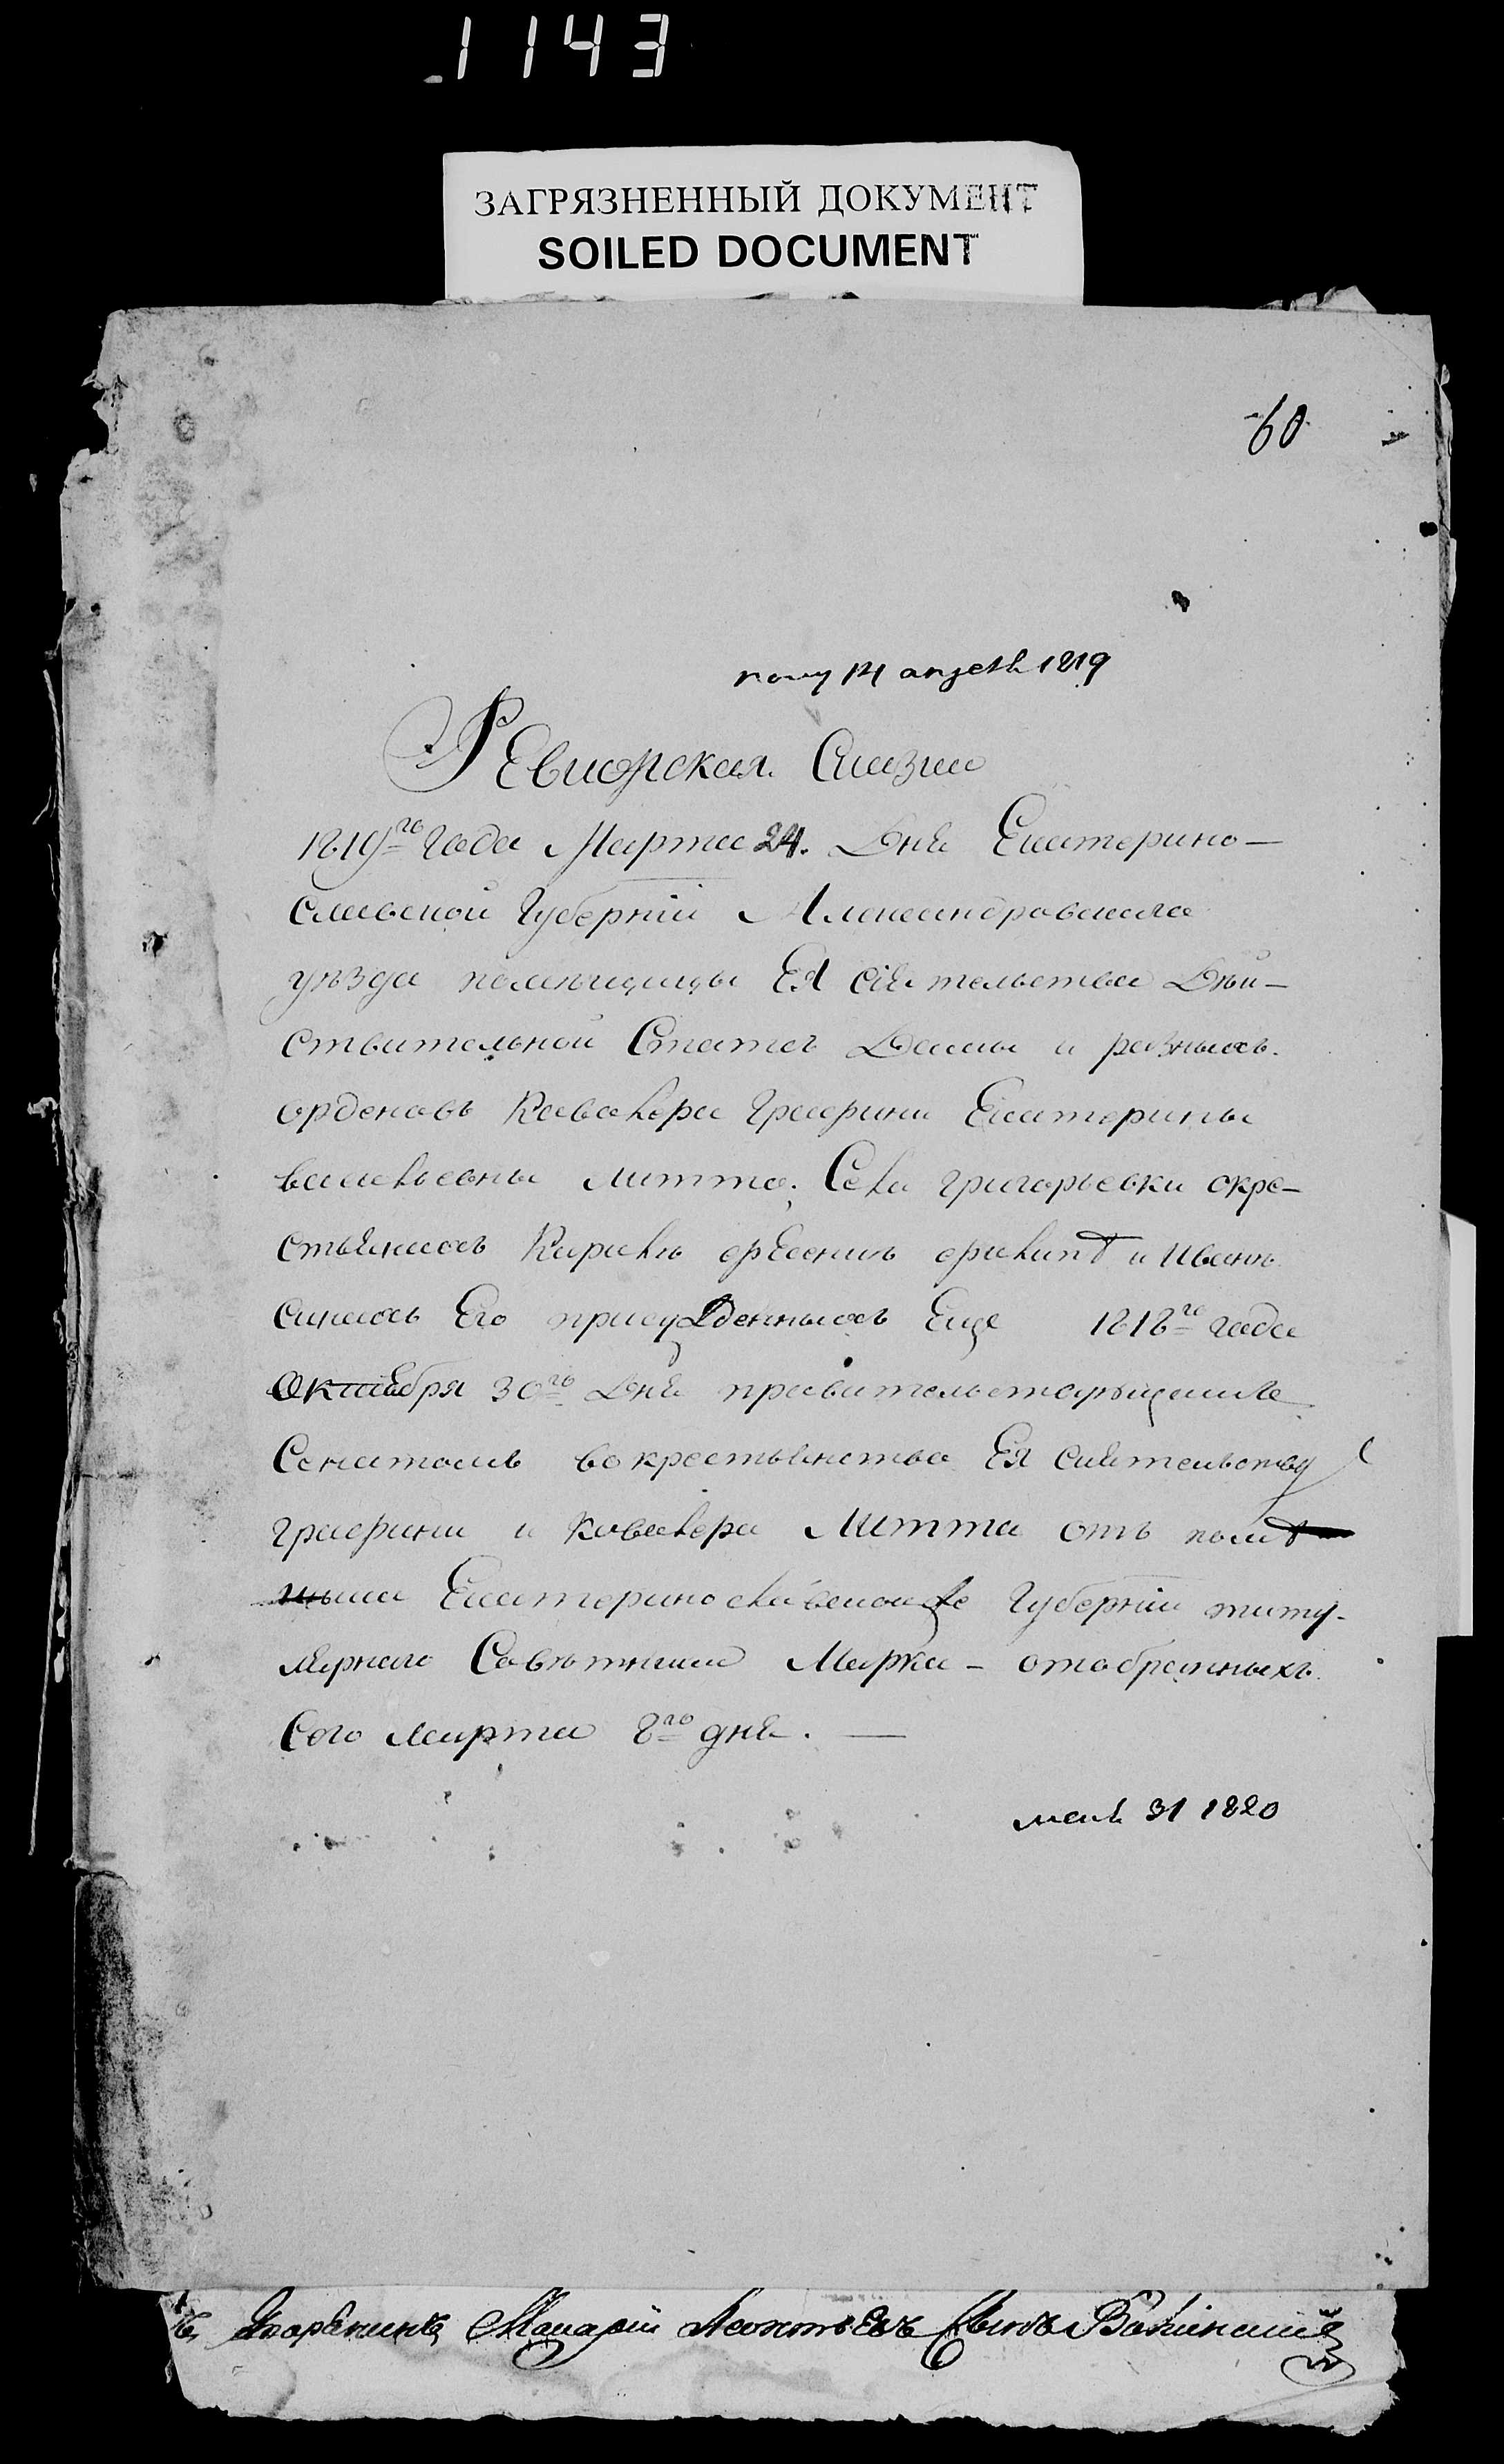 1143
ЗАГРЯЗНЕННЫЙ ДОКУМЕНТ
SOILED DOCUMENT
60
14 1819
Ревиская Сказка
1819го года Марта 24. Дня Екатерино-
славской Губернии Александровскаго
уѣзда помѣщицы Ея Сіятельства Дѣй-
ствительной Статсъ Дамы и разныхъ
орденовъ Кавалера Графини Екатерины
васильевны литта. Села григорьевки окре-
стьянахъ и Иванѣ
синахъ Его присужденныхъ Еще 1818го года
Октября 30го Дня правительствующимъ
Сенатомъ во крестьянство Ея Сиятельству
графини и Кавалера Литта отъ помѣ
Екатеринославской Губернии титу-
лярнаго Совѣтника Марка - отобранныхъ
Сего марта 8го дня. —
31 1820